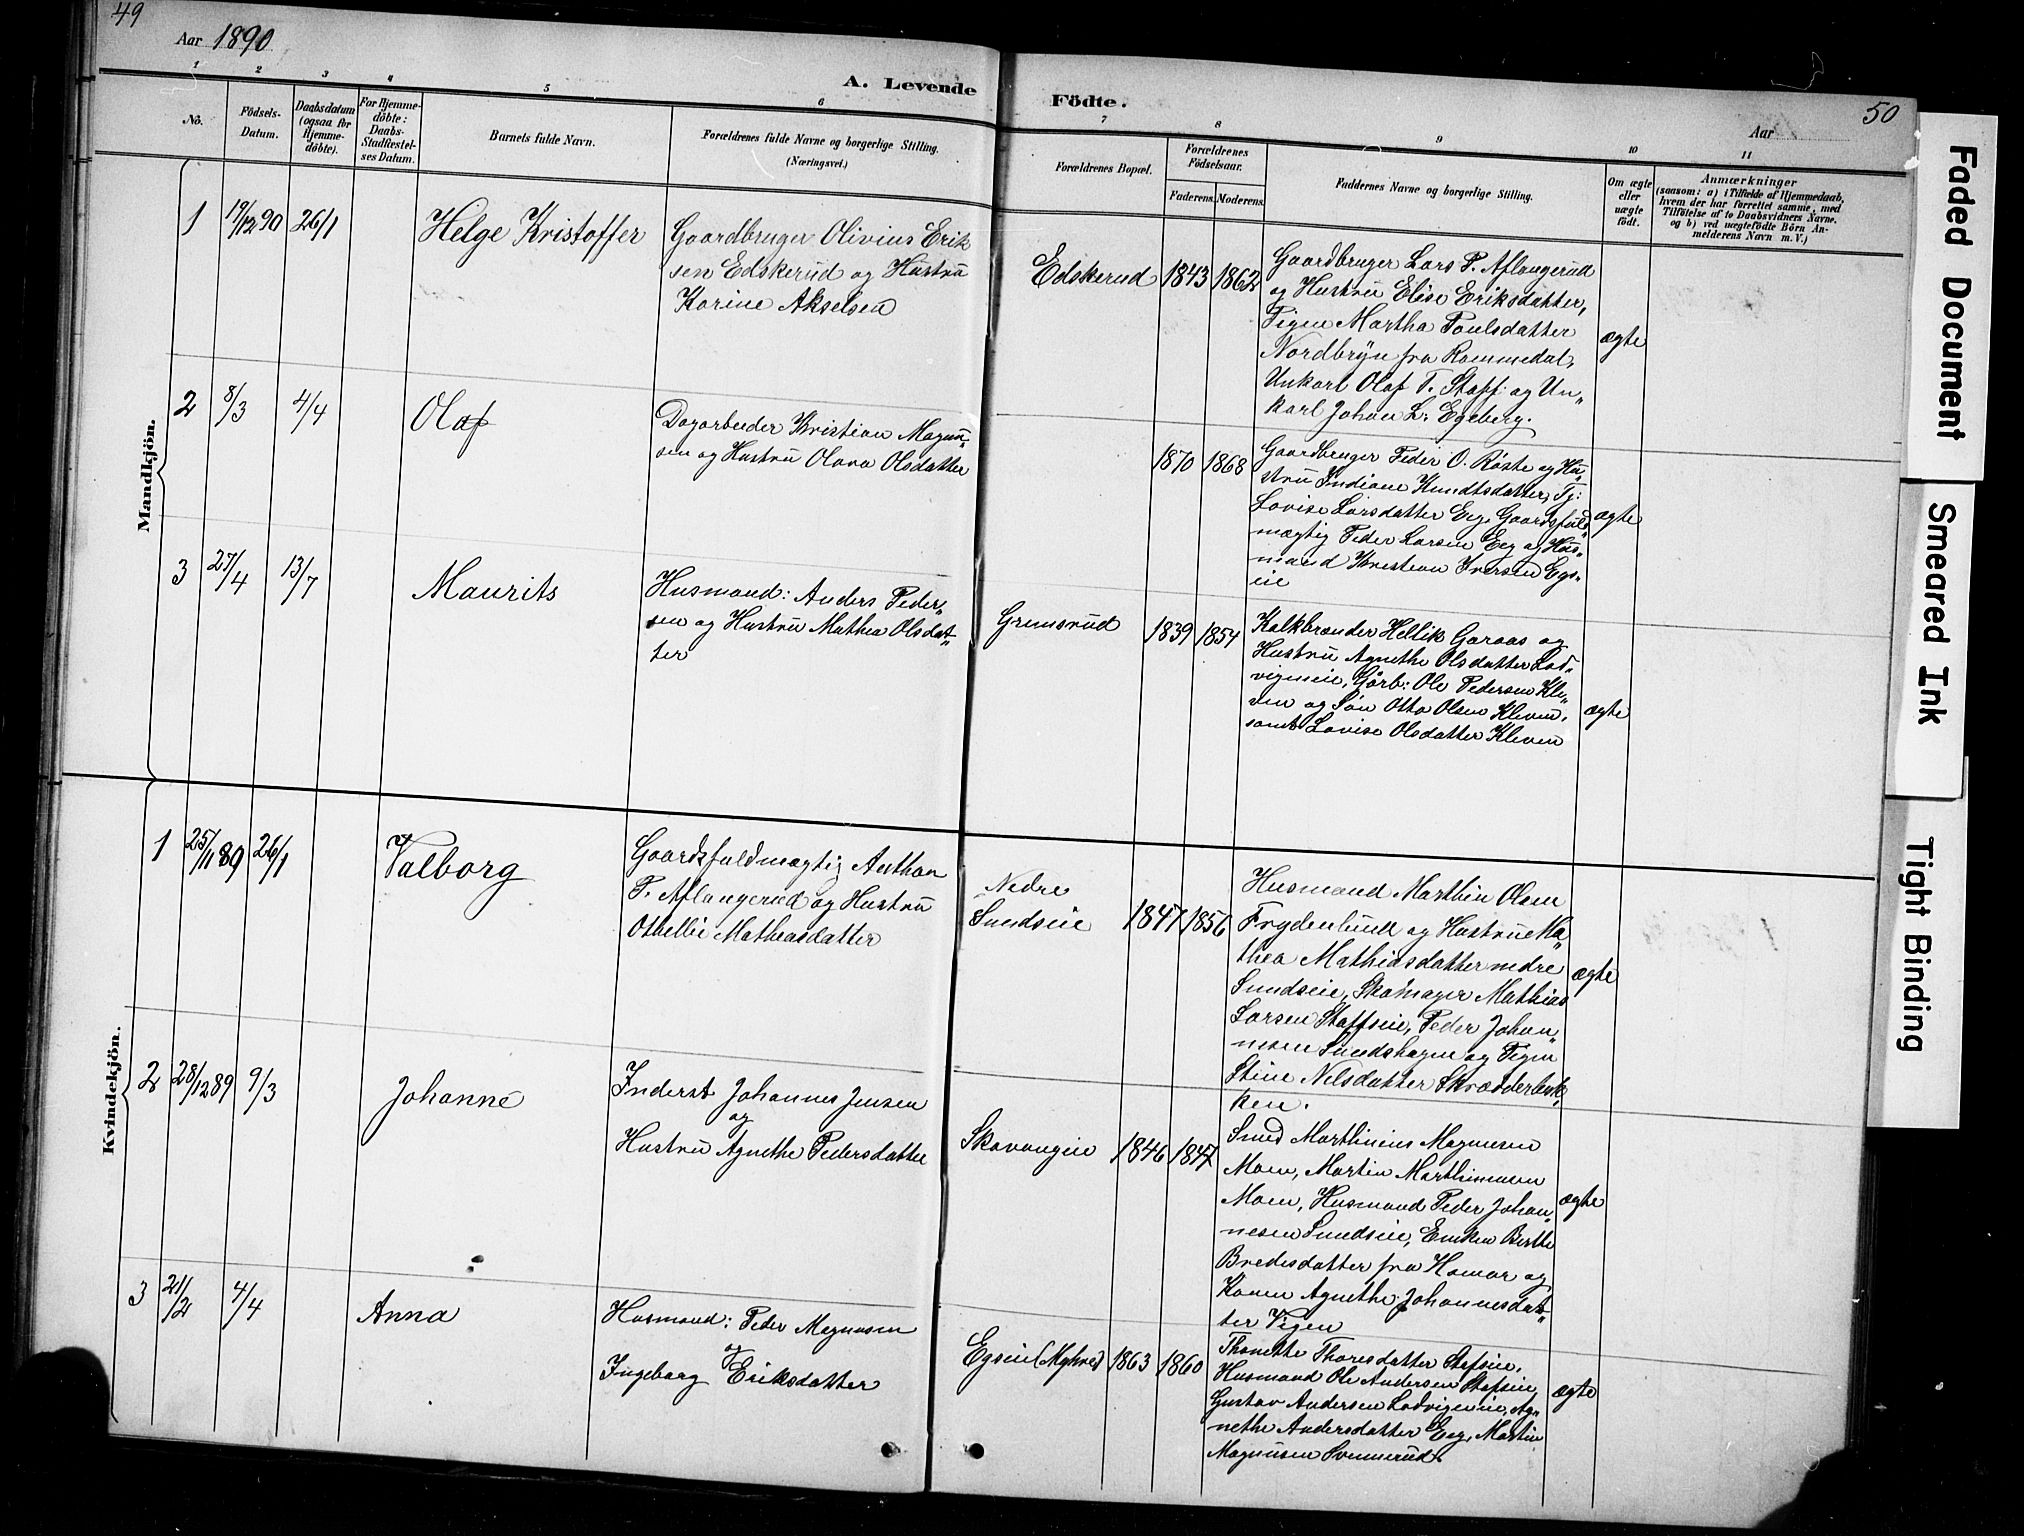 49
Aar 1890
A. Levende
Födte.
Aar
50
1 2 3 4 5 6
7 8 9 10 11
No.
Födsels-
Datum.
Daabsdatum
(ogsaa for
Hjemme-
döbte).
For Hjemme-
döbte:
Daabs-
Stadfæstel-
ses Datum.
Barnets fulde Navn.
Forældrenes fulde Navne og borgerlige Stilling.
(Næringsvei.)
Forældrenes Bopæl.
Forældrenes
Födselsaar.
Faderens. Moderens.
Faddernes Navne og borgerlige Stilling.
Om ægte
eller
uægte
födt.
Anmærkninger
(saasom: a) i Tilfælde af Hjemmedaab,
hvem der har forrettet samme, med
Tilföielse af to Daabsvidners Navne.
og b) ved uægtefödte Börn An-
melderens Navn m. V.)
Mandkjön.
1 19/12 90 26/1
Helge Kristoffer
Gaardbruger Olivius Erik
sen Edskerud og Hustru
Karine Akselsen
Edskerud 1843 1862
Gaardbruger Lars P. Aflangerud
og Hustru Elise Eriksdatter,
Pigen Martha Poulsdatter
Nordbryn fra Rommedal,
Unkarl Olaf T. Staff og Un„
karl Johan L. Egeberg.
ægte
2 8/3 4/4
Olaf
Dagarbeider Kristian Magnu„
sen og Hustru Olava Olsdatter
1870 1868
Gaardbruger Peder O. Røste og Hu„
stru Indiane Knudtsdatter, Pg:
Lovise Larsdatter Eeg, Gaardsfuld„
mægtig Peder Larsen Eeg og Hus„
mand Kristian Iversen Egs„
eie
ægte
3 27/4 13/7
Maurits
Husmand: Anders Peder„
sen og Hustru Mathea Olsdat„
ter
Grimsrud 1839 1854
Kalkbrænder Hellik Garaas og
Hustru Agnethe Olsdatter Lod„
vigseie, Gårb: Ole Pedersen Kle„
ven og Søn Otto Olsen Kleven,
samt Lovise Olsdatter Kleven
ægte
Kvindekjön.
1 25/11 89 26/1
Valborg
Gaardsfuldmægtig Anthon
P. Aflangerud og Hustru
Othellie Mathiasdatter
Nedre
Sundseie 1847 1856
Husmand Marthin Olsen
Frydenlund og Hustrue Ma„
thea Mathiasdatter nedre
Sundseie, Skomager Mathias
Larsen Staffseie, Peder Johan„
nesen Sundshagen og Pigen
Stine Nilsdatter Skrædderbak„
ken.
ægte
2 28/12 89 9/3
Johanne
Inderst Johannes Jensen
og
Hustru Agnethe Pedersdatter
Skavangeie 1846 1847
Smed Marthinius Magnusen
Moen, Martin Marthinusen
Moen, Husmand Peder Johan„
nesen Sundseie, Enken Berthe
Bredesdatter fra Hamar og
Konen Agnethe Johannesdat„
ter Vigen
ægte
3 21/2 4/4
Anna
Husmand: Peder Magnusen
og
Ingeborg Eriksdatter
Egseie (Myhre) 1863 1860
Thonette Thoresdatter Stafseie,
Husmand Ole Andersen Stafseie,
Gustav Andersen Lodvigseie, Ag„
nethe Andersdatter Eeg, Martin
Magnusen Svennerud.
ægte
Faded Document
Smeared Ink
Tight Binding